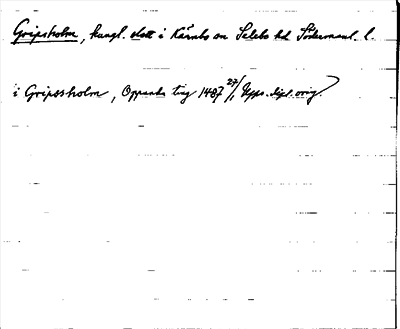 Gripsholm, kungl. slott i Kärnbo sn Selebo hd Södermanl. l.
i Gripssholm, Oppunda ting 1487 27/1 Upps. dipl. orig.